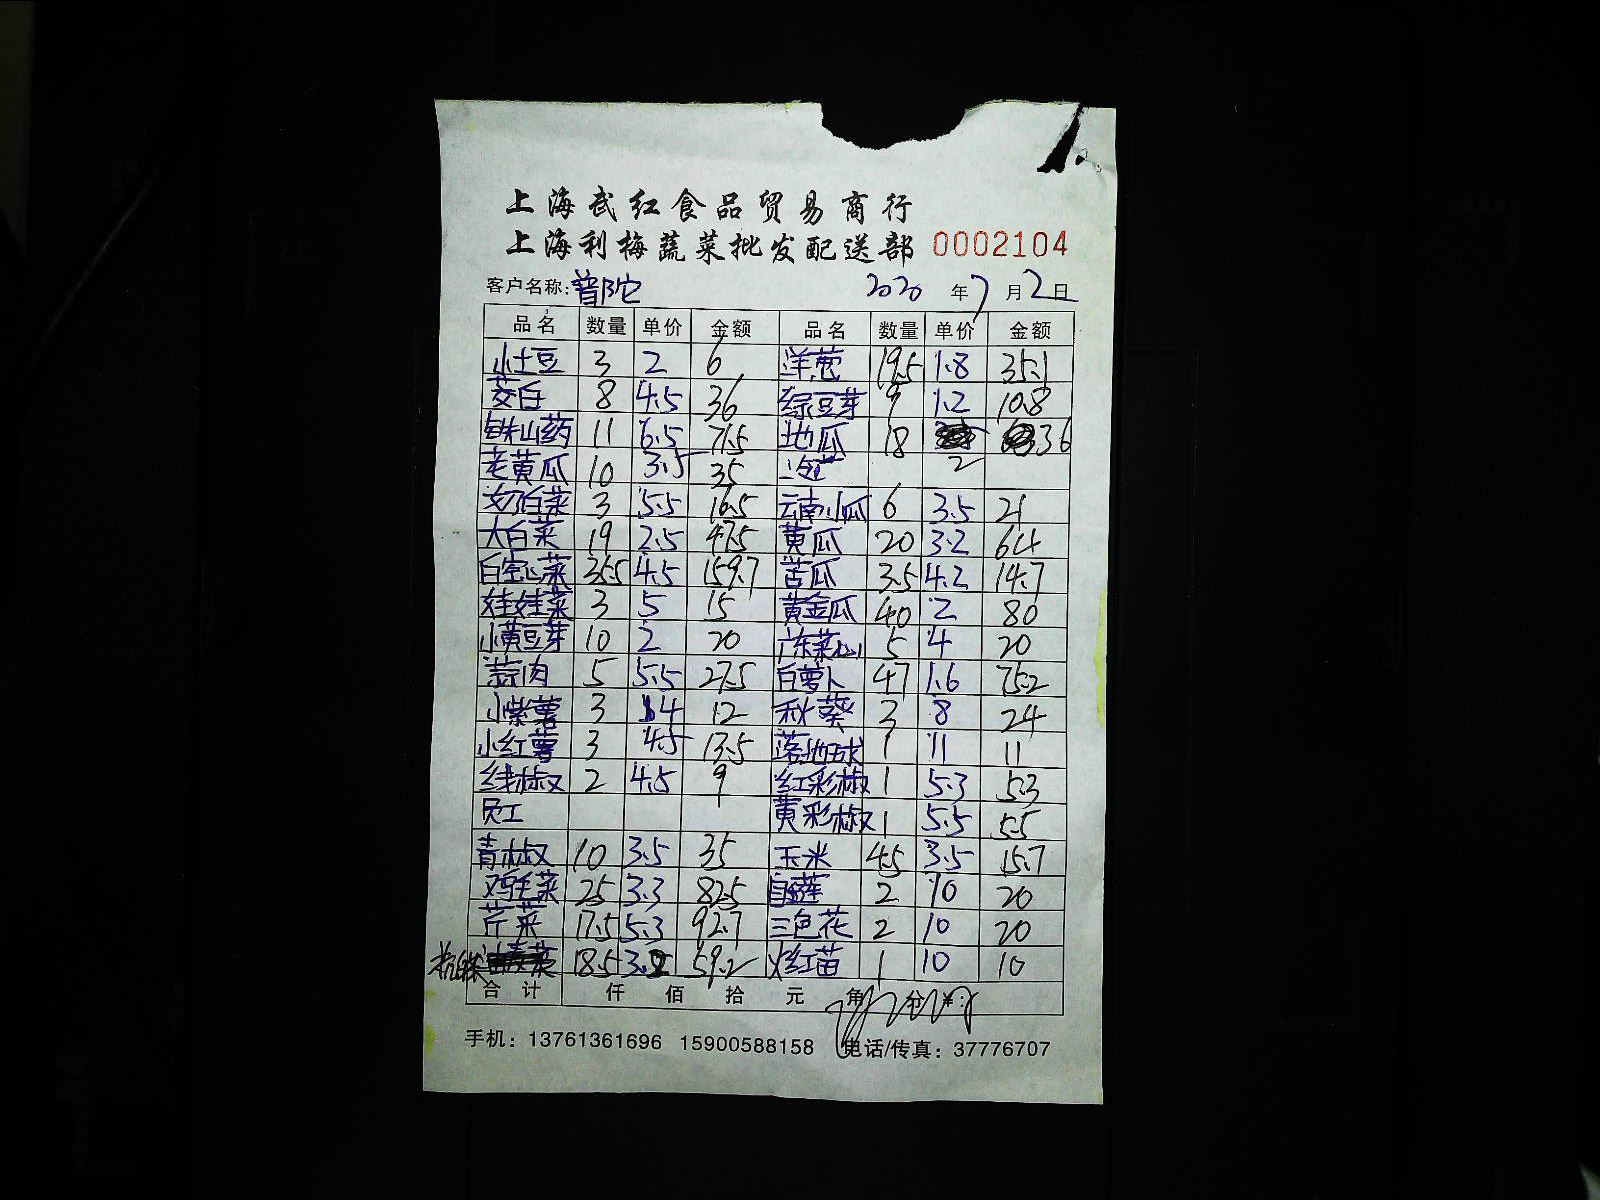 上海武红食品贸易商行
上海利梅蔬菜批发配送部 0002104
客户名称:普陀 2020 年 7 月 2 日
品名 数量 单价 金额 品名 数量 单价 金额
小土豆 3 2 6 洋葱 19.5 1.8 35.1
茭白 8 4.5 36 绿豆芽 9 1.2 10.8
铁山药 11 6.5 71.5 地瓜 18 2 36
老黄瓜 10 3.5 35
奶白菜 3 5.5 16.5 云南小瓜 6 3.5 21
大白菜 19 2.5 47.5 黄瓜 20 3.2 64
白空心菜 35.5 4.5 159.7 苦瓜 3.5 4.2 14.7
娃娃菜 3 5 15 黄金瓜 40 2 80
小黄豆芽 10 2 20 广东菜心 5 4 20
蒜肉 5 5.5 27.5 白萝卜 47 1.6 75.2
小紫薯 3 4 12 秋葵 3 8 24
小红薯 3 4.5 13.5 落地球 1 11 11
线椒 2 4.5 9 红彩椒 1 5.3 5.3
员工 黄彩椒 1 5.5 5.5
青椒 10 3.5 35 玉米 4.5 3.5 15.7
鸡毛菜 25 3.3 82.5 2 10 20
芹菜 17.5 5.3 92.7 三色花 2 10 20
杭白菜 18.5 3.2 59.2 红苗 1 10 10
合计 仟 佰 拾 元 角 分 ¥:
手机：13761361696 15900588158 电话/传真：37776707